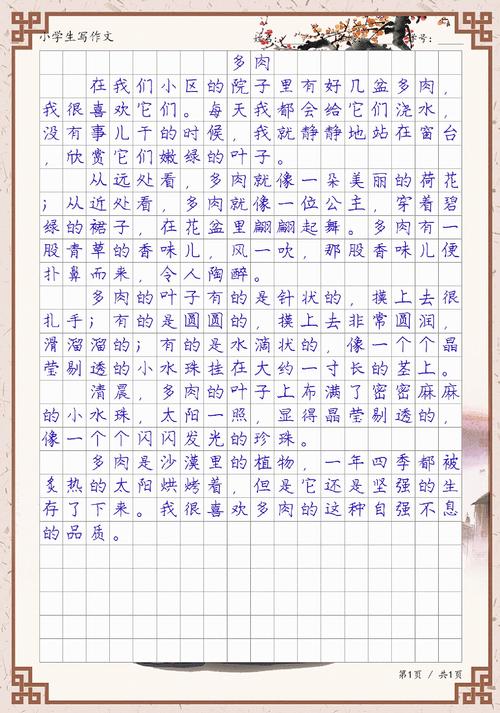 小学生写作文
学号:
多肉
在我们小区的院子里有好几盆多肉,
我很喜欢它们。每天我都会给它们浇水,
没有事儿干的时候,我就静静地站在窗台
,欣赏它们嫩绿的叶子。
从远处看,多肉就像一朵美丽的荷花
;从近处看,多肉就像一位公主,穿着碧
绿的裙子,在花盆里翩翩起舞。多肉有一
股青草的香味儿,风一吹,那股香味儿便
扑鼻而来,令人陶醉。
多肉的叶子有的是针状的,摸上去很
扎手;有的是圆圆的,摸上去非常圆润,
滑溜溜的;有的是水滴状的,像一个个晶
莹剔透的小水珠挂在大约一寸长的茎上。
清晨,多肉的叶子上布满了密密麻麻
的小水珠,太阳一照,显得晶莹剔透的,
像一个个闪闪发光的珍珠。
多肉是沙漠里的植物,一年四季都被
炙热的太阳烘烤着,但是它还是坚强的生
存了下来。我很喜欢多肉的这种自强不息
的品质。
第1页 / 共1页